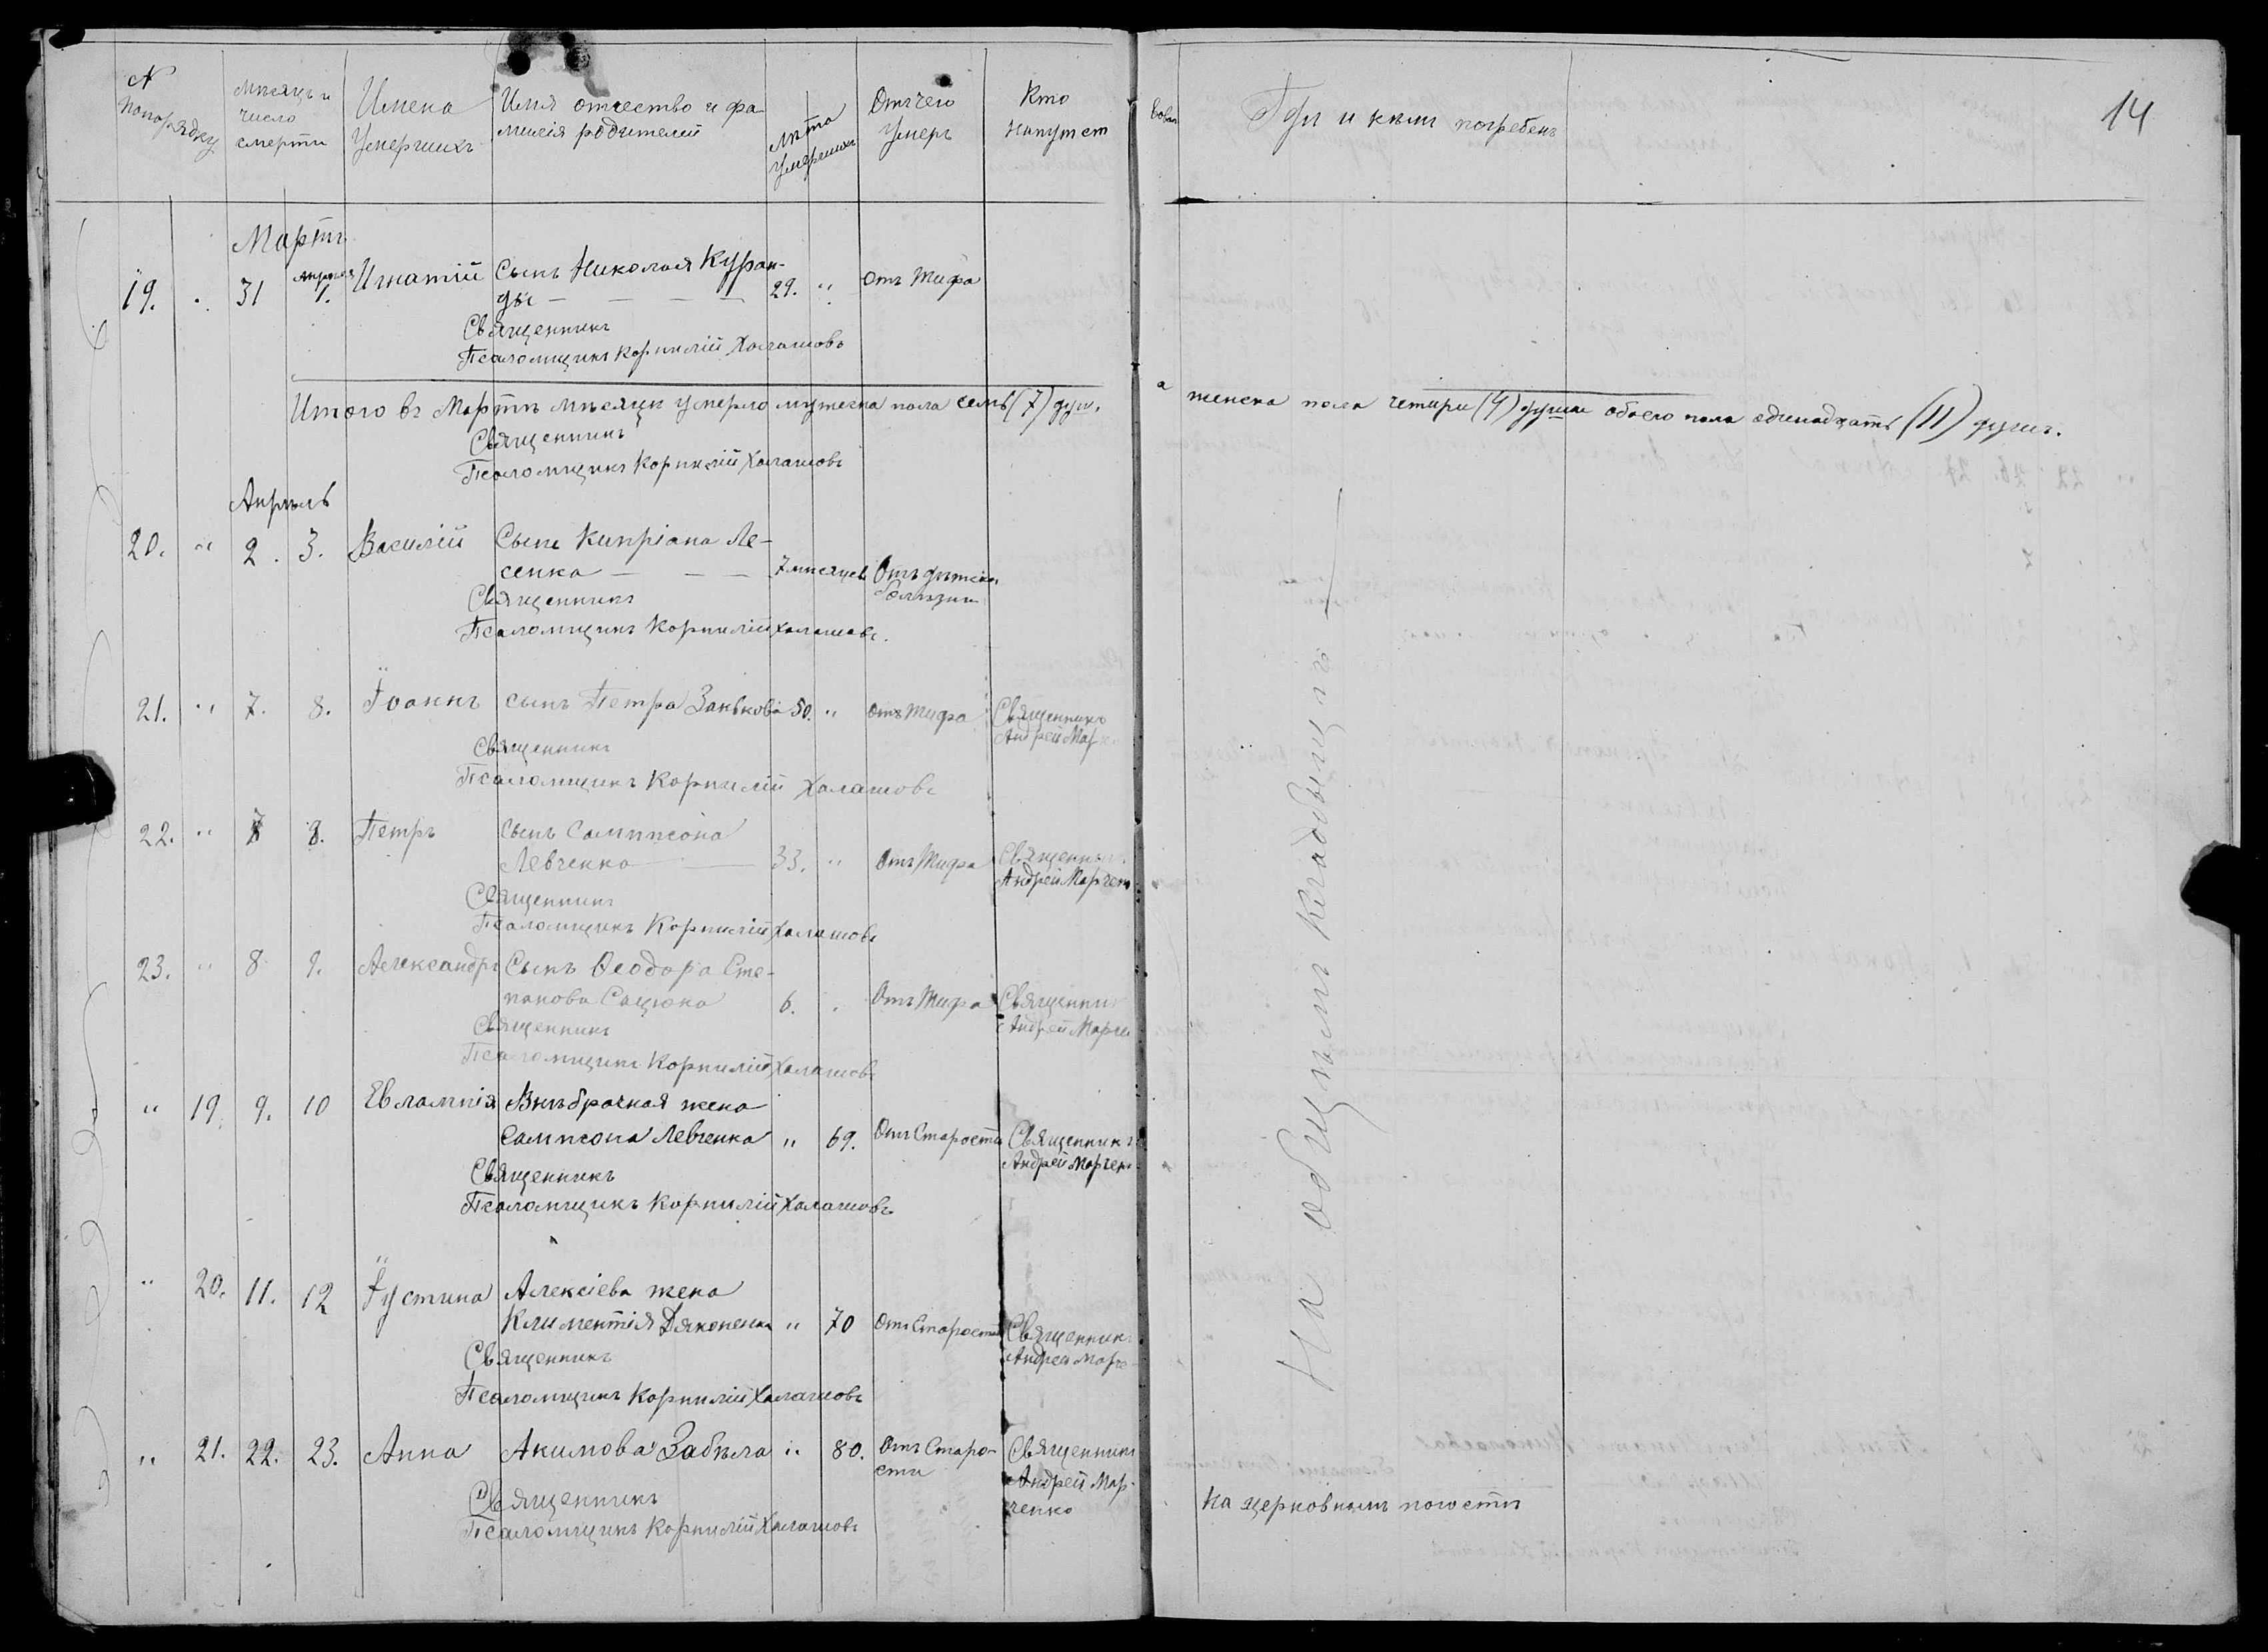 № попорядку
мѣсяцъ и число смерти
Имена Умершихъ
Имя отчество и фамилія родителей
Лѣта Умершихъ
Отъ чего умеръ
Кто напутствовалъ
Где и кѣмъ погребенъ
14
Мартъ
19. 31 апреля 1. Игнатій Сынъ Николая Куран-
ды — — — 29. " Отъ Тифа
Священникъ
Псаломщикъ Корнилій Халашовъ
Итого въ Мартѣ мѣсяцѣ умерло мужеска пола семь (7) душ. а женска пола четыри (4) души обоего пола одинадцать (11) душъ.
Священникъ
Псаломщикъ Корнилій Халашовъ
Апрѣль
20. " 2. 3. Василій Сынъ Кипріана Ле-
сенка — — — 7 мѣсяцев Отъ дѣтской
болѣзни
Священникъ
Псаломщикъ Корнилій Халашовъ.
21. " 7. 8. Іоаннъ сынъ Петра Занькова 50. " отъ Тифа Священникъ
Андрей Мар
Священникъ
Псаломщикъ Корнилій Халашовъ
22. " 7 8. Петръ сынъ Сампсона
Левченко — 33. " Отъ Тифа Священник
Андрей Марчен
Священникъ
Псаломщикъ Корнилій Халашовъ
23. " 8 9. Александръ Сынъ Ѳеодора Сте-
панова Сацюка 6. . Отъ Тифа Священник
Андрей Марче
Священникъ
Псаломщикъ Корнилій Халашовъ
" 19. 9. 10 Евлампія Внѣбрачная жена
Сампсона Левченка " 69. Отъ Старости Священникъ
Андрей Марчен
Священникъ
Псаломщикъ Корнилій Халашовъ
" 20. 11. 12 Іустина Алексіева жена
Климентія Дяконенка " 70 Отъ Старости Священник
Андрей Марче
Священникъ
Псаломщикъ Корнилій Халашовъ
" 21. 22. 23. Анна Акимова Забѣла " 80. Отъ Старо- Священникъ
сти Андрей Мар-
ченко
Священникъ
Псаломщикъ Корнилій Халашовъ
На общемъ кладбищѣ —
на церковномъ погостѣ